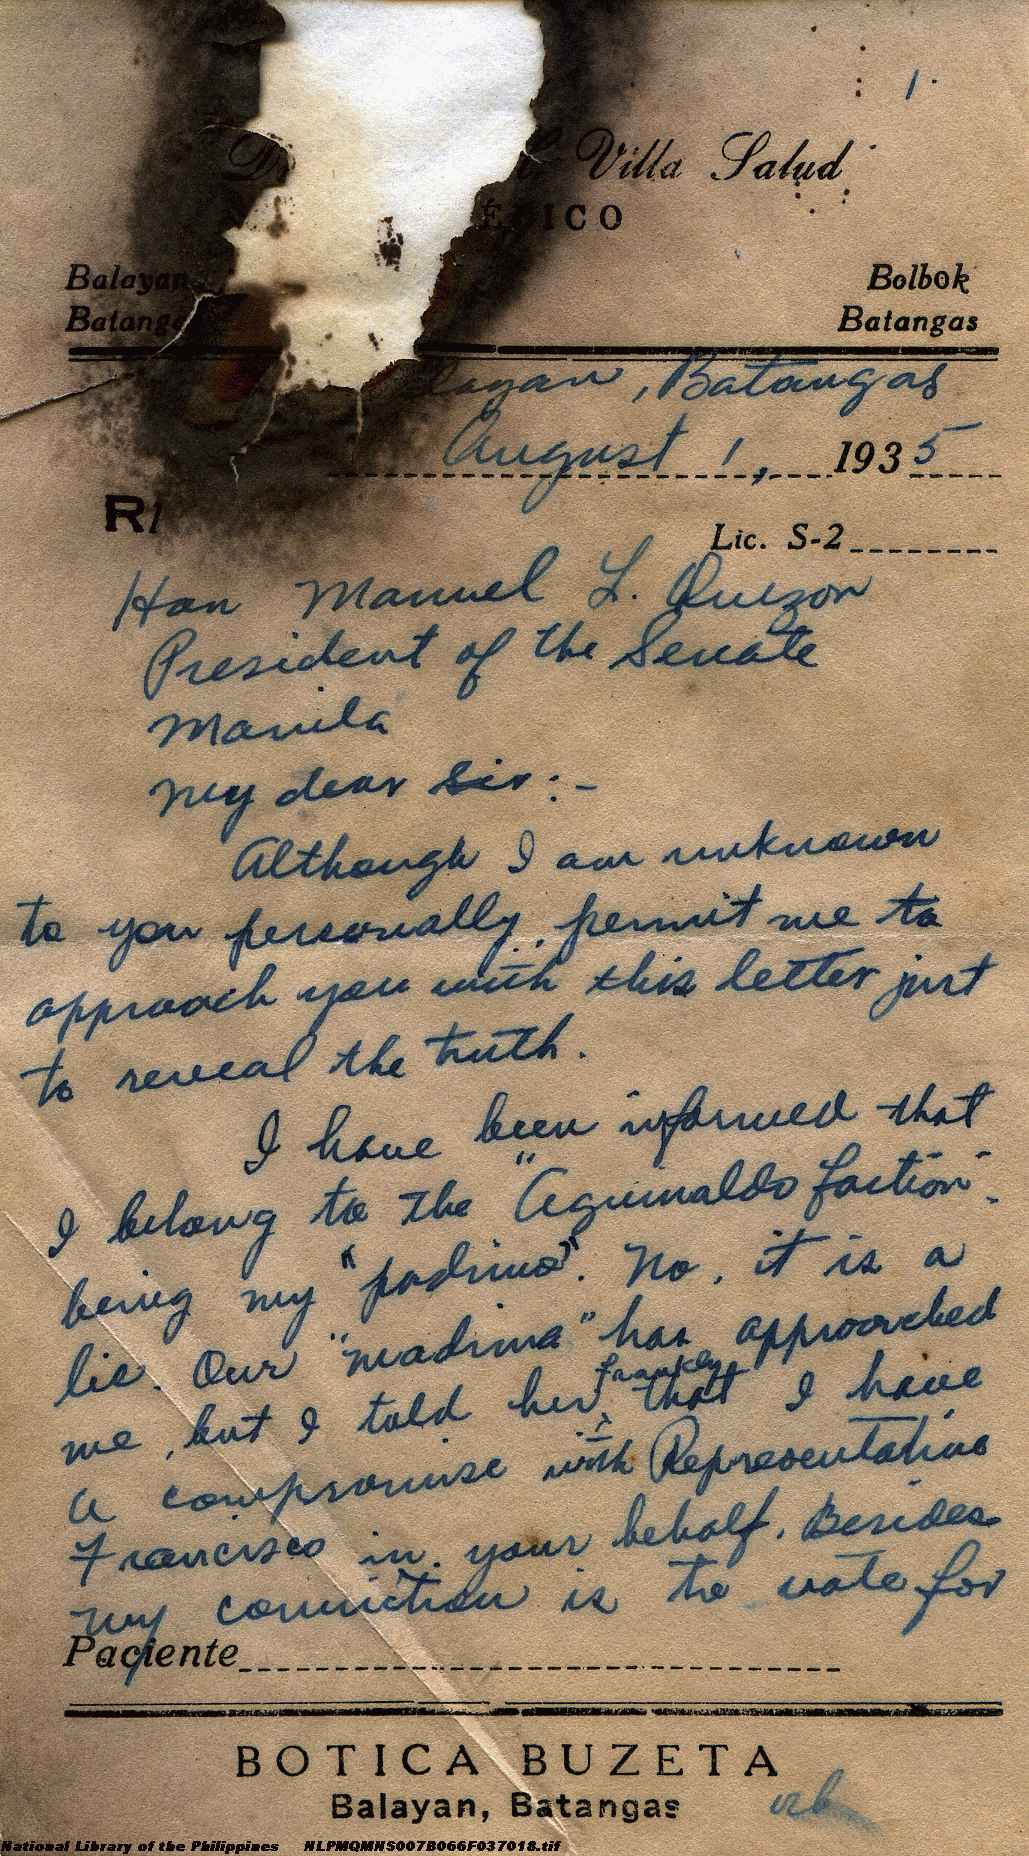 1.
Villa Salud
ICO
Balayan Bolbok
Batangas Batangas
, Batangas
August 1, 1935
Lic. S-2
Hon Manuel L. Quezon
President of the Senate
Manila
My dear Sir:-
Although I am unknown
to you personally, permit me to
approach you with this letter just
to reveal the truth.
I have been informed that
I belong to the "Aguinaldo faction"
being my "padrino". No, it is a
lie. Our "madrina" has approached
frankly
me, but I told her, that I have
a compromise with Representative
Francisco in your behalf. Besides
my conviction is to vote for
Paciente
BOTICA BUZETA
Balayan, Batangas
National Library of the Philippines NLPMQMNS007B066F037018.tif